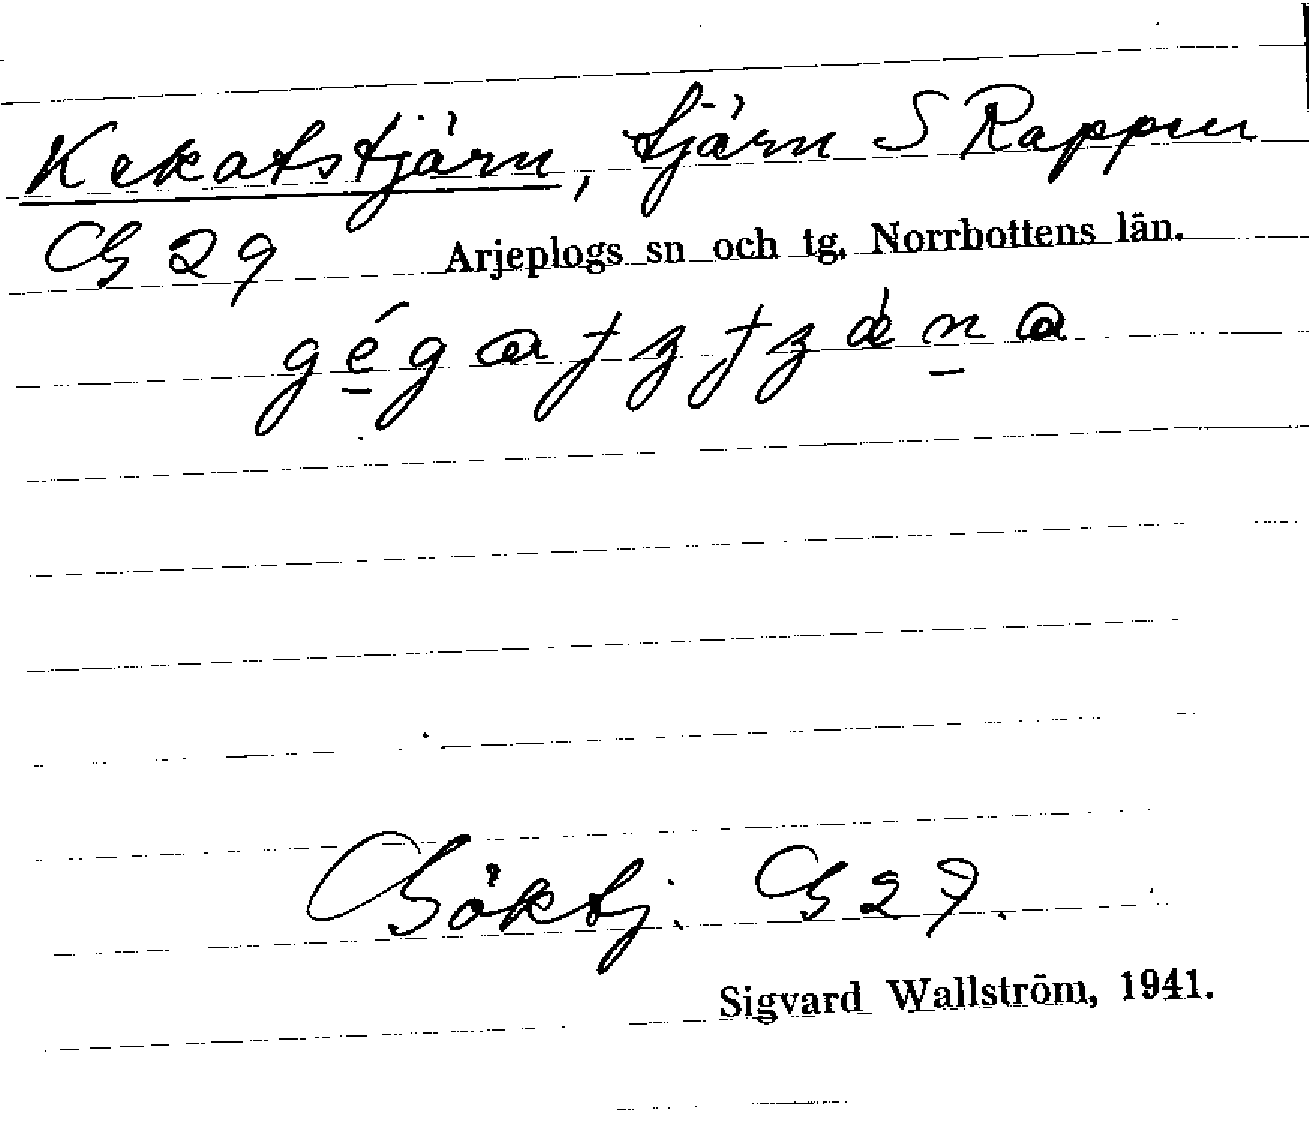 Kekatstjärn, tjärn S Rappen
G 29 Arjeplogs sn och tg, Norrbottens län.
Göktj. G 27.
Sigvard Wallström, 1941.